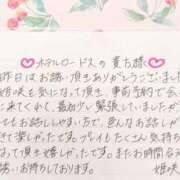 ホテルロードスの貴ち様
昨日はお誘い頂きありがとうございました
姫咲を気になって頂き、事前予約で会い
に来てくれて、最初少し緊張していましたが
とても話しやすくて、色んなお話しがで
きて楽しかったです。プレイもたくさん気持ち
なって頂き嬉しかったです。またお時間合う
お誘いお待ちしております。
姫咲